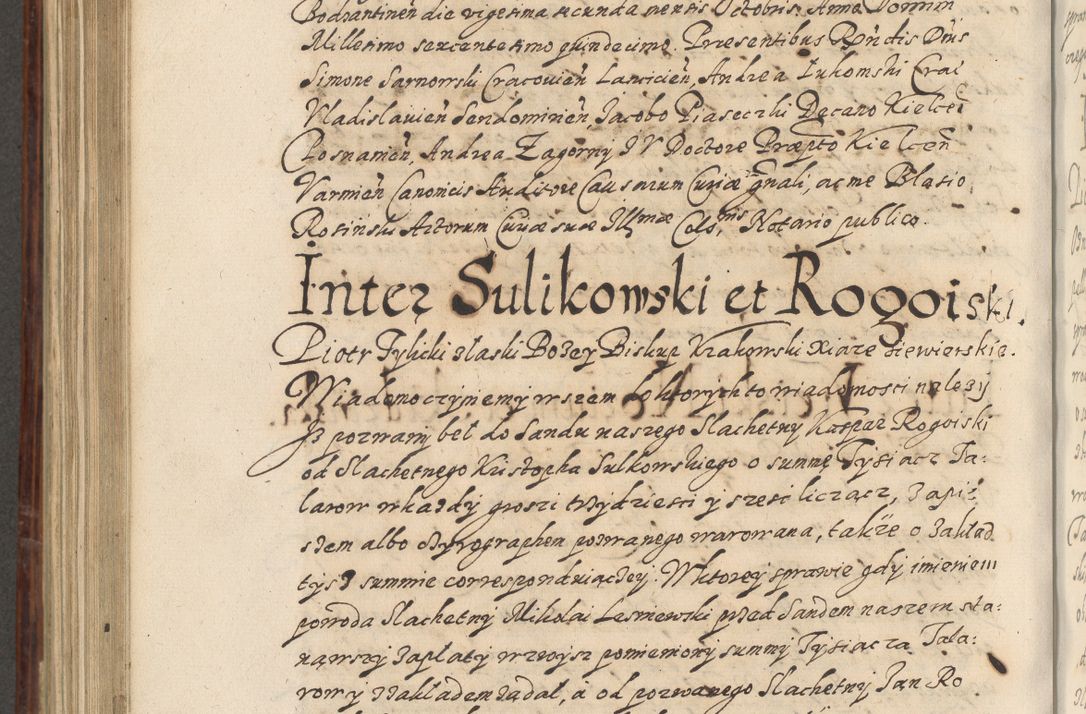 Bodzantinen̄ die vigesima secunda mensis Octobris. Anno Domini
Millesimo sexcentesimo quindecimo. Præsentibus Rdn̄dis Dn̄is
Simone Sarnowski Cracouien̄ Lawicien̄, Andrea Lukomski Crac̄
Vladislauien̄ Sendomirien̄, Jacobo Piaseczki Decano Kielcen̄
Posnanien̄, Andrea Zagorny JV Doctore Præpto Kielcen̄
Varmien̄ Canonicis Auditore Causarum Curiæ gn̄ali, ac me Blasio
Rosinski Actorum Curiæ suæ Illmæ Cels̄nis Notario publico.
Inter Sulikowski et Rogoiski.
Piotr Tylicki z łaski Bozey Biskup Krakowski Xiąze Siewierskie.
Wiadomo czyniemy wszem do ktorych to wiadomosci nalezy
Jz pozwany beł do Sandu naszego Slachetny Kaspar Rogoiski
od Slachetnego Kristopha Sulkowskiego o summę Tysiacz Ta:
larow w kazdy groszi trzydziesci y szesc liczącz, Zapis̄
szem albo Cyrographem pozwanego warowana, takze o Zakład
tysz summie correspondujączey. W ktorey sprawie gdy imieniem
powoda Slachetny Mikolai Lesniewski przed Sandem naszem sta:
nąwszy Zapłaty wzwysz pomieniony summy Tysiącza Tala:
row y z zakładem ządał, a od pozwanego Slachetny Jan Ro